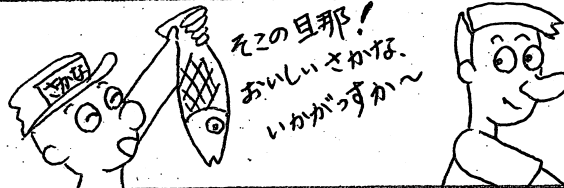 さかな
そこの旦那!
おいしいさかな、
いかがっすか〜